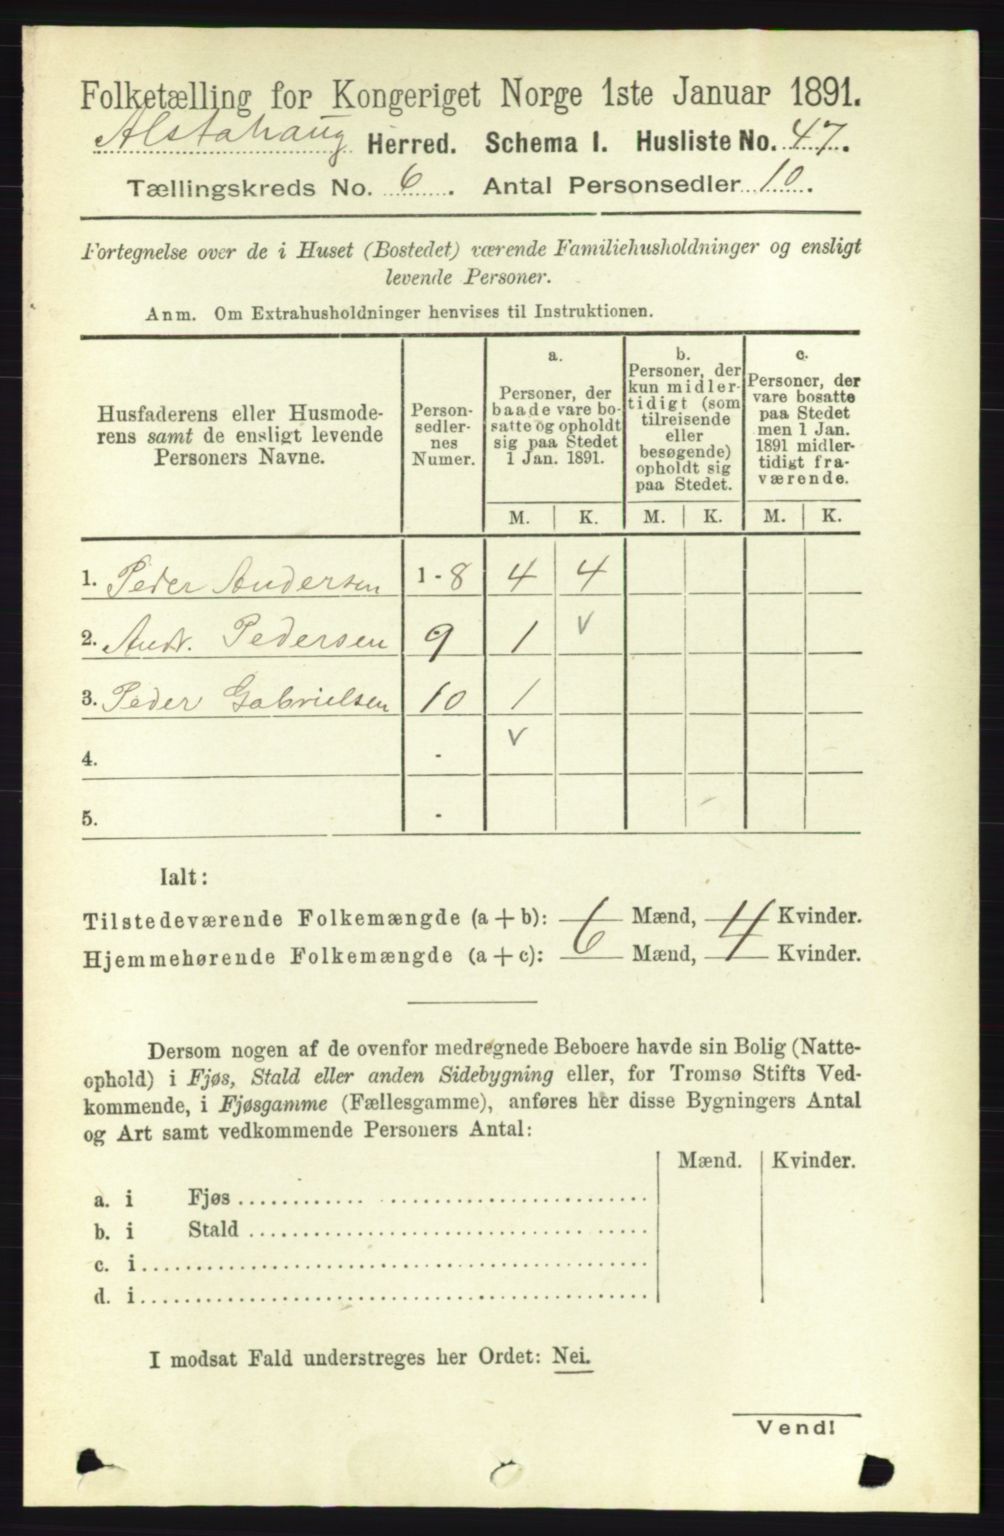 Folketælling for Kongeriget Norge 1ste Januar 1891.
Alstahaug Herred. Schema I. Husliste No. 47.
Tællingskreds No. 6. Antal Personsedler 10.
Fortegnelse over de i Huset (Bostedet) værende Familiehusholdninger og ensligt
levende Personer.
Anm. Om Extrahusholdninger henvises til Instruktionen.
Husfaderens eller Husmode-
rens samt de ensligt levende
Personers Navne.
Person-
sedler-
nes
Numer.
a.
Personer, der
baade vare bo-
satte og opholdt
sig paa Stedet
1 Jan. 1891.
b.
Personer, der
kun midler-
tidigt (som
tilreisende
eller
besøgende)
opholdt sig
paa Stedet.
c.
Personer, der
vare bosatte
paa Stedet
men 1 Jan.
1891 midler-
tidigt fra-
værende.
M. K. M. K. M. K.
1. Peder Andersen 1-8 4 4
2. Andr. Pedersen 9 1 v
3. Peder Gabrielsen 10 1
4. - v
5. -
Ialt:
Tilstedeværende Folkemængde (a+b): 6 Mænd, 4 Kvinder.
Hjemmehørende Folkemængde (a+c): 6 Mænd, 4 Kvinder.
Dersom nogen af de ovenfor medregnede Beboere havde sin Bolig (Natte-
ophold) i Fjøs, Stald eller anden Sidebygning eller, for Tromsø Stifts Ved-
kommende, i Fjøsgamme (Fællesgamme), anføres her disse Bygningers Antal
og Art samt vedkommende Personers Antal:
Mænd. Kvinder.
a. i Fjøs
b. i Stald
c. i
d. i
I modsat Fald understreges her Ordet: Nei.
Vend!